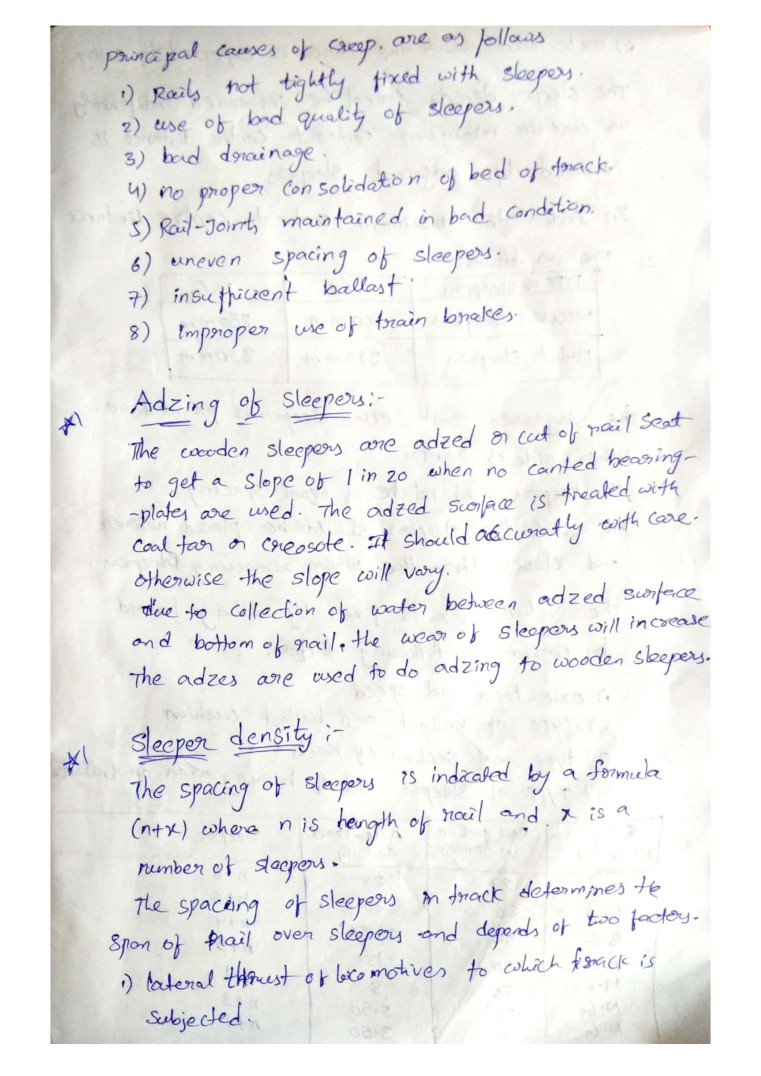 principal causes of creep. are as follows
1) Rails not tightly fixed with sleepers.
2) use of bad quality of sleepers.
3) bad drainage.
4) no proper consolidation of bed of track.
5) Rail-Joints maintained in bad condition.
6) uneven spacing of sleepers.
7) insufficient ballast.
8) improper use of train brakes.
Adzing of Sleepers:-
The wooden sleepers are adzed or cut of rail seat
to get a slope of 1 in 20 when no canted bearing-
-plates are used. The adzed surface is treated with
coal tar or creosote. It should accuratly with care.
otherwise the slope will vary.
due to collection of water between adzed surface
and bottom of rail, the wear of sleepers will increase
The adzes are used to do adzing to wooden sleepers.
Sleeper density :-
The spacing of sleepers is indicated by a formula
(n+x) where n is length of rail and x is a
number of sleepers.
The spacing of sleepers in track determines the
span of rail over sleepers and depends of two factors.
1) lateral thrust of locomotives to which track is
subjected.